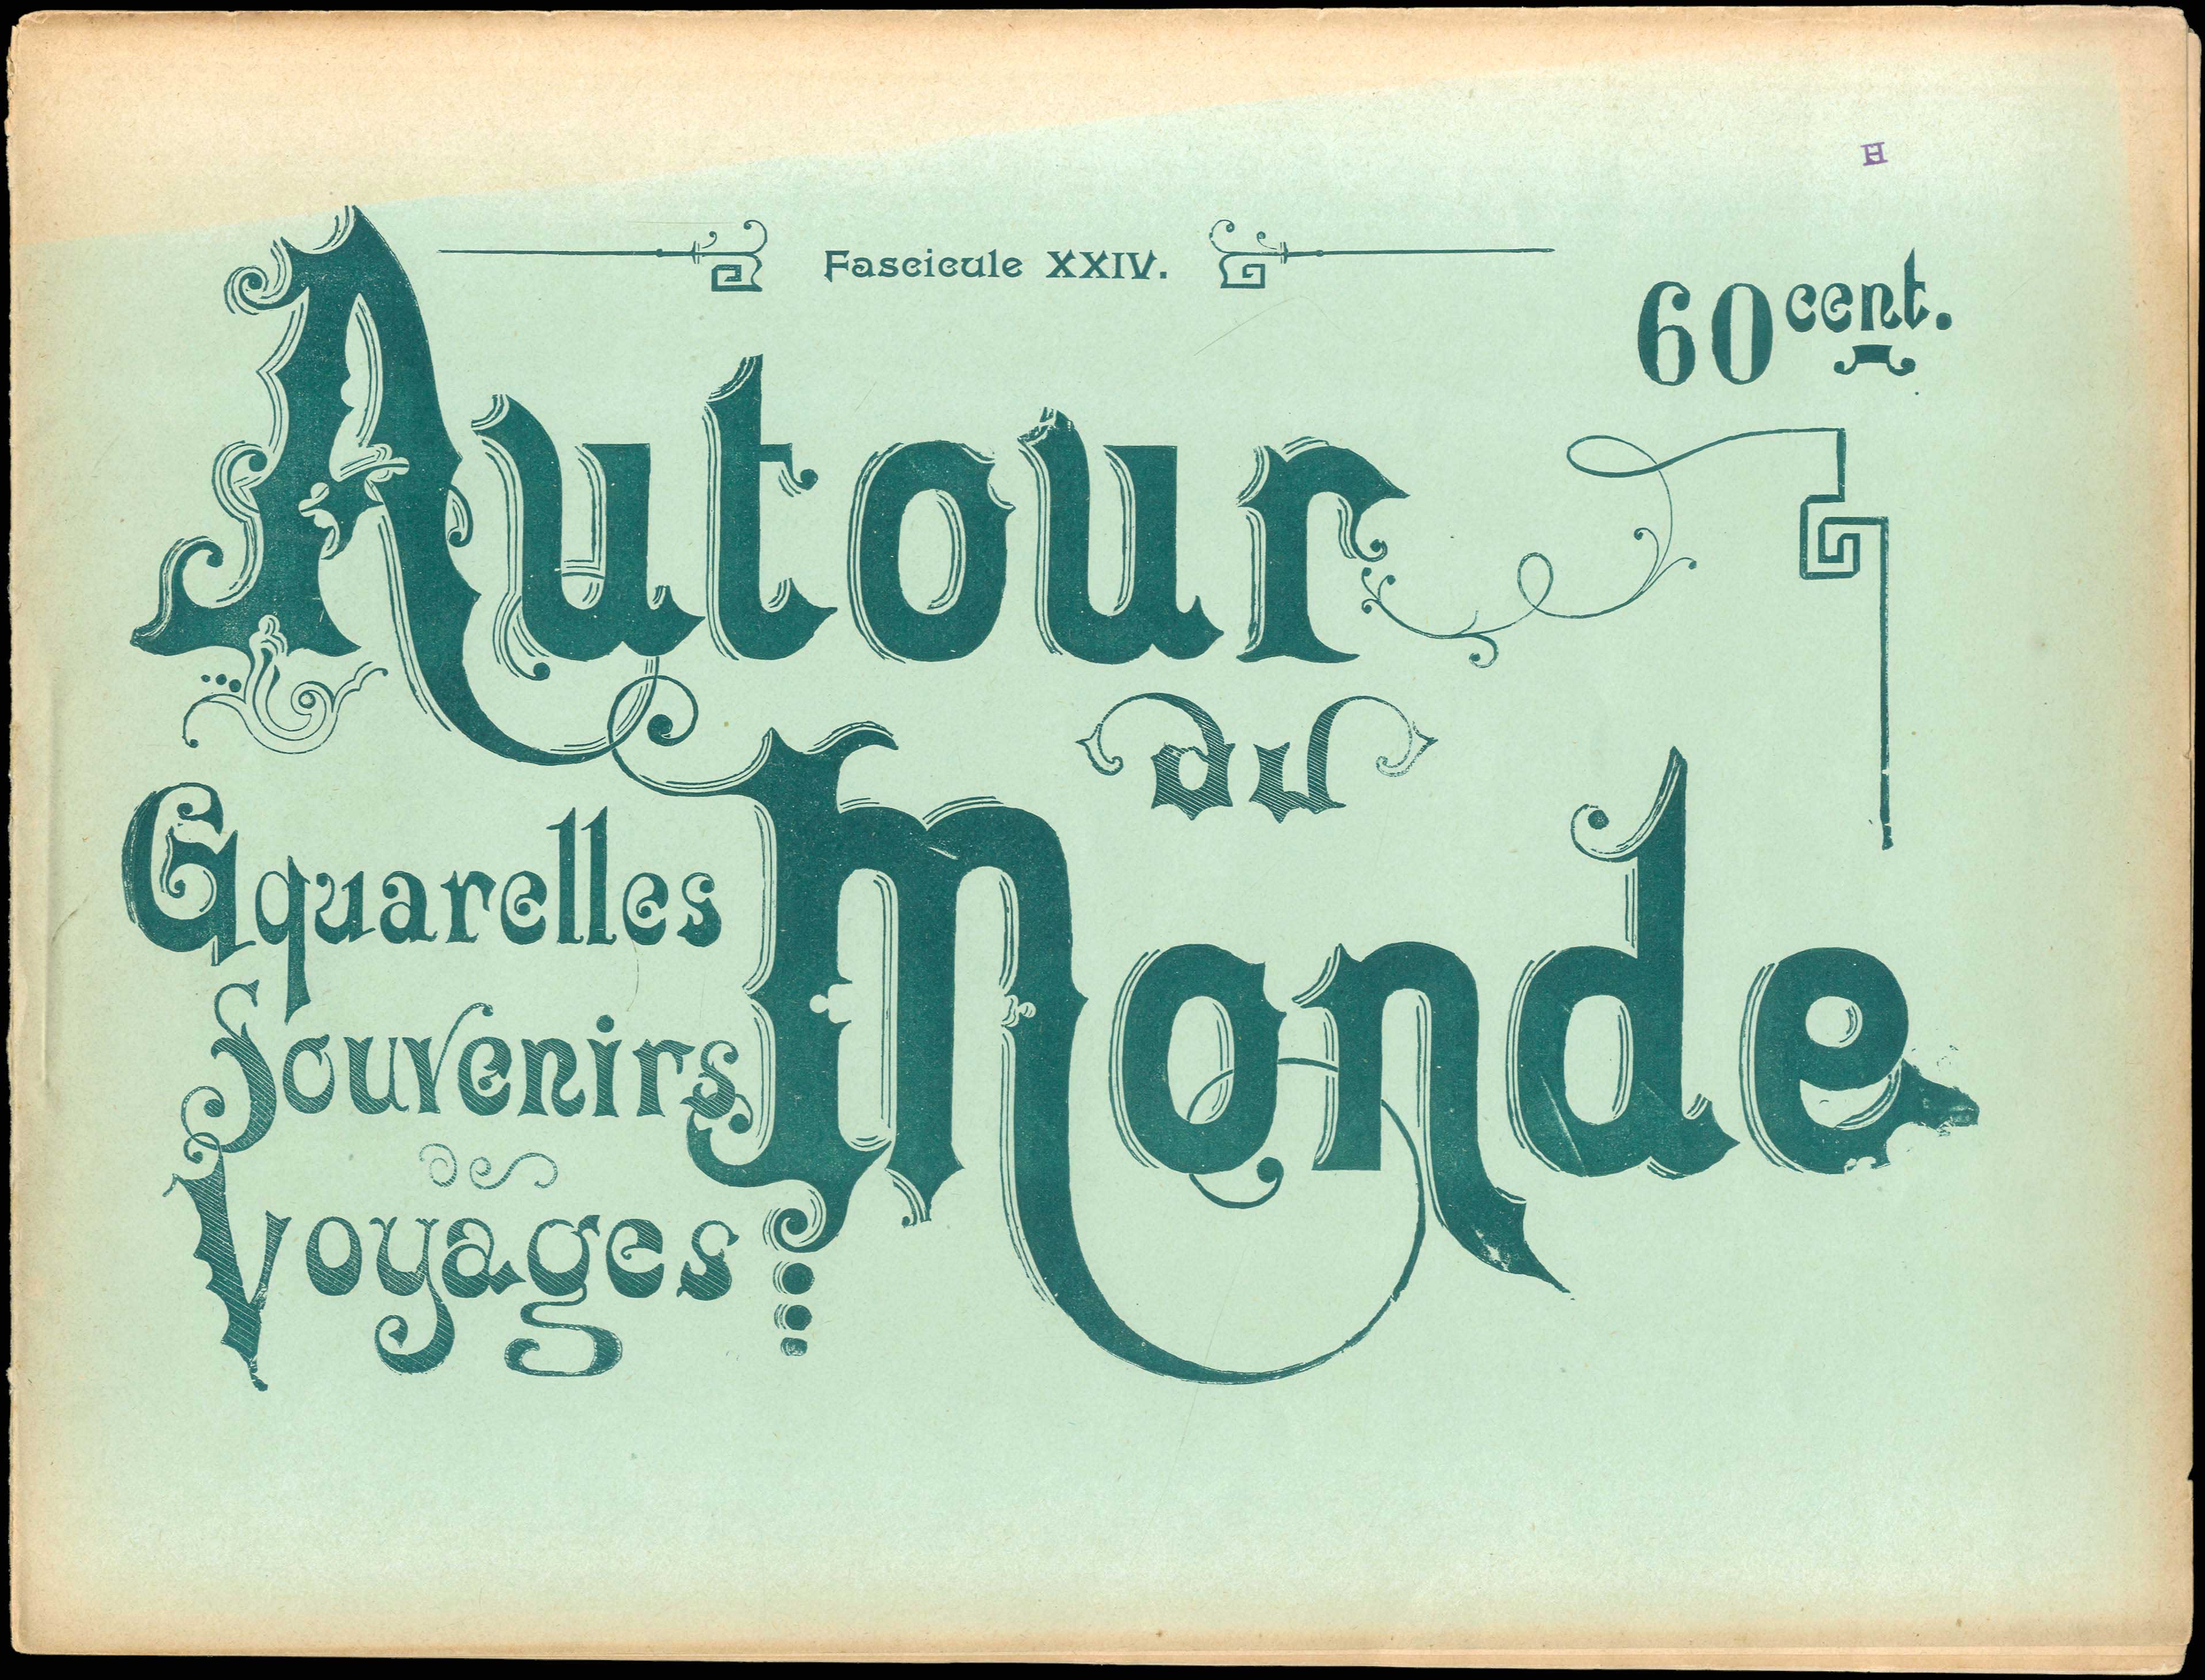 H
Fascicule XXIV.
60 cent.
Autour
du
Monde
Aquarelles
Souvenirs
de
Voyages